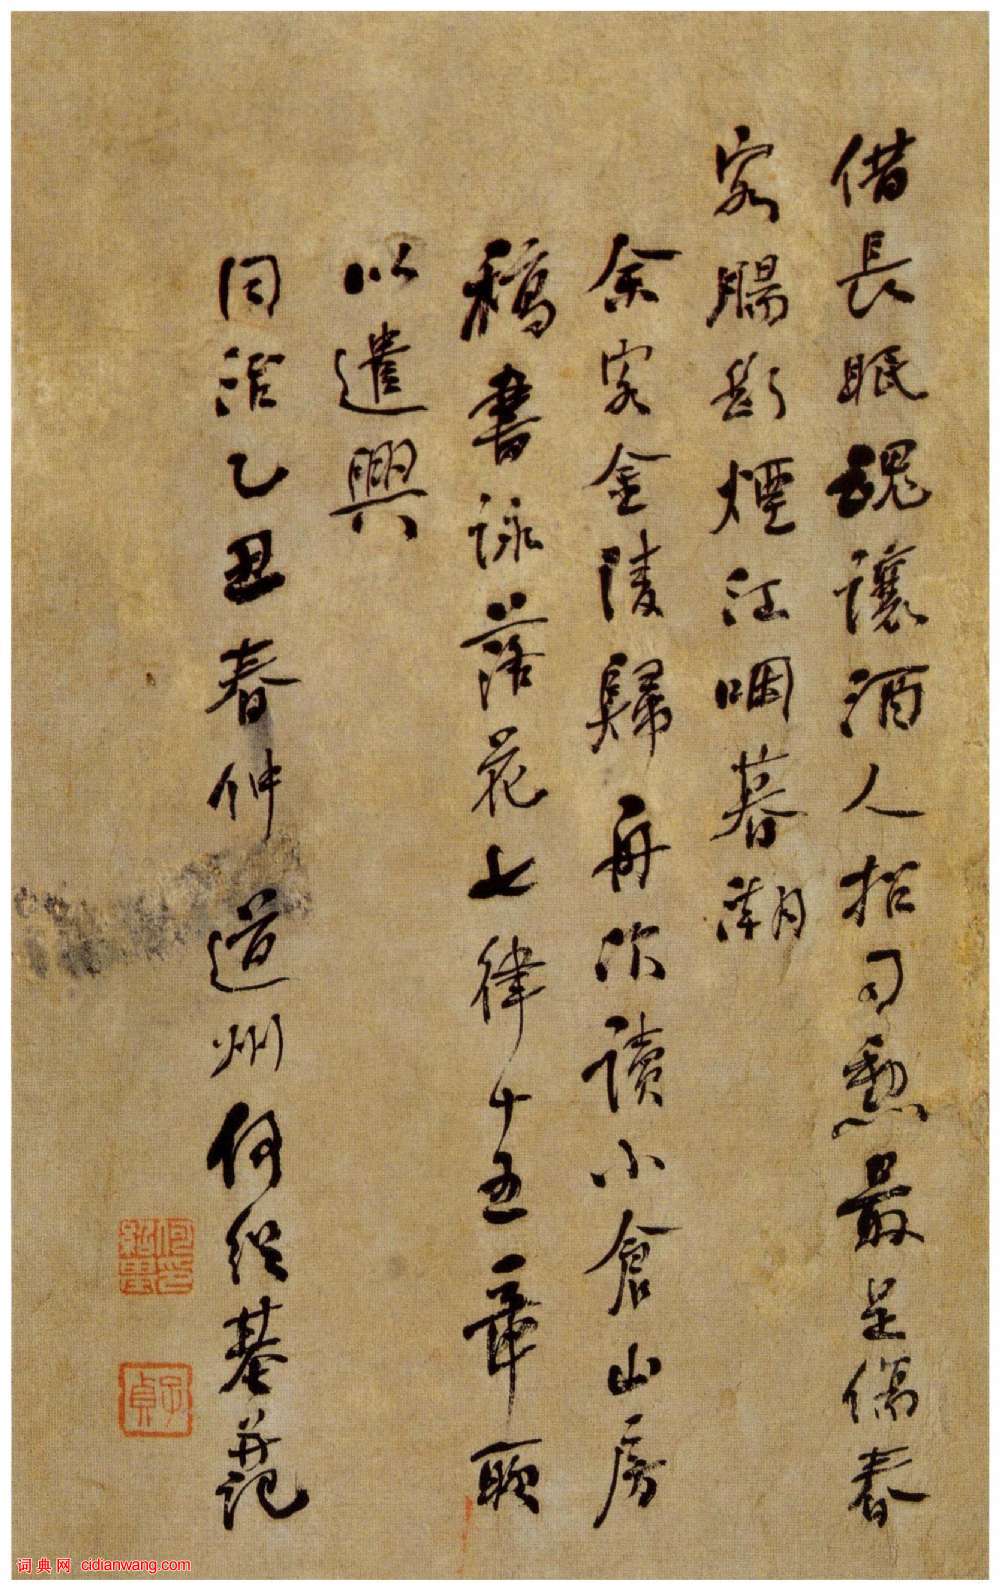 借長眠魂讓酒人招司勳最是傷春
客腸斷煙江咽暮潮
余客金陵歸舟次讀小倉山房
稿書詠落花七律十五章聊
以遣興
同治乙丑春仲道州何紹基并記
子貞
词典网 cidianwang.com